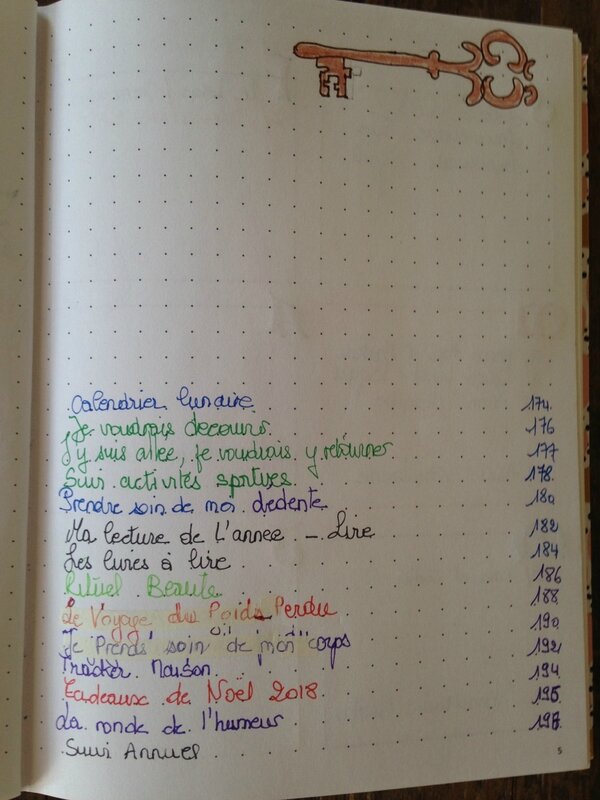 Calendrier lunaire 174
Je voudrais decouvrir 176
J'y suis allée, je voudrais y retourner 177
Suivi activités sportives 178
Prendre soin de moi dedente 180
Ma lecture de L'annee - Lire 182
Les livres à lire 184
Rituel Beaute 186
Le Voyage du Poids Perdu 188
Je Prends soin de mon corps 190
Tracker Maison 192
Cadeaux de Noël 2018 194
La ronde de l'humeur 196
Suivi Annuel 198
5